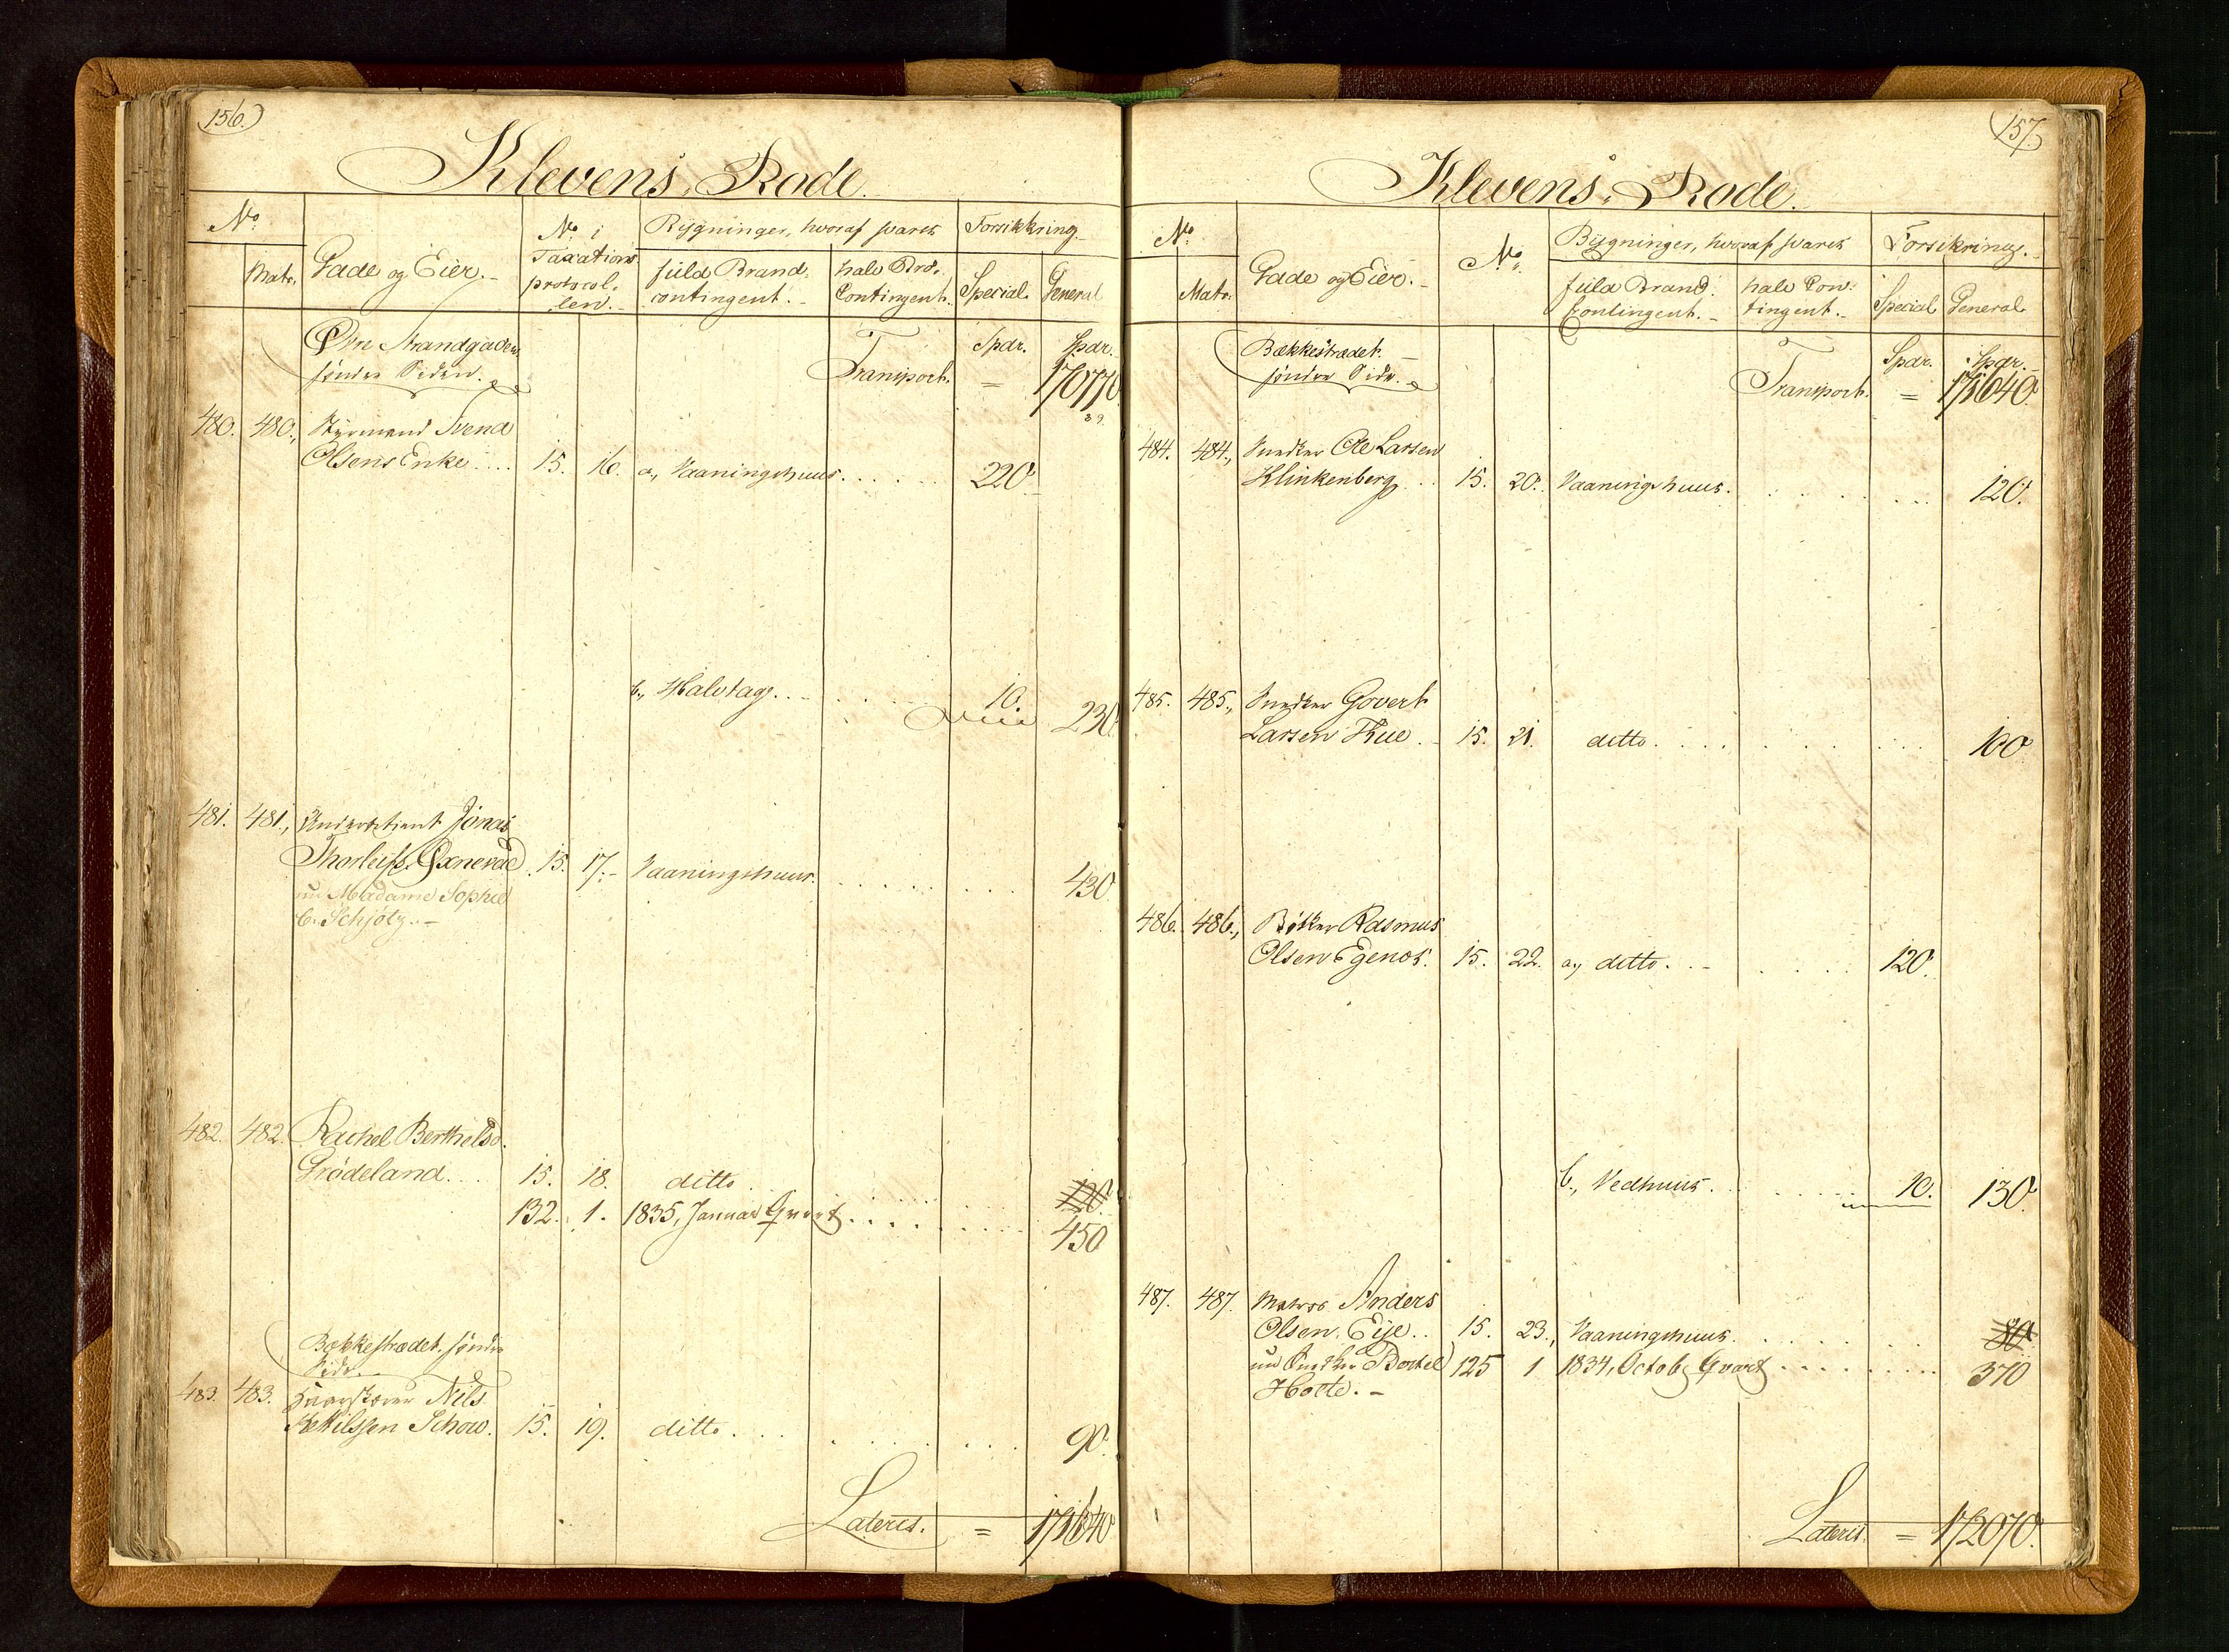 156.)
Klevens, Rode.
No.
Matr.
Gade og Eier. –
No. i
Taxations
protocol-
len. –
Bygninger, hvoraf svares
fuld Brand-
contingent. –
halv Br:
Contingent.
Forsikkring
Special
General
Øvre Strandgaden
søndre Siden.
Transport. =
Spdr.
Spdr.
170770
480. 480., Styrmand Svend
Olsens Enke .... 15. 16. a, Vaaningshuus. . . . . . 220.
b., Halvtag. . – . . . . 10.
230
481. 481., Underbetient Jonas
Thorleifs. Oxnevad 15. 17. – Vaaningshuus. . . . . . . . 430
nu Madame Sophie
C. Schjøtz. –
482. 482. Rachel Berthelsd.
Grödeland. . . 15. 18. ditto. . . . . 120
132. 1. 1835, Januar Qvart. . . . . . .
450
Bækkestrædet søndre
Side.
483. 483. Nils
Ketilssen Schow. 15. 19. ditto. . . . . . . . 90.
Lateris. = 171640
157.
Klevens, Rode.
No.
Matr.
Gade og Eier. –
No.
Bygninger, hvoraf svares
fuld Brand-
Contingent. –
halv Con-
tingent. –
Forsikring.
Special
General
Bækkestrædet. –
søndre Side.
Transport. =
Spdr.
Spdr.
171640.
484. 484., Snedker Ole Larsen
Klinkenberg . . 15. 20. Vaaningshuus. . . . . . . . 120.
485. 485., Snedker Govert
Larsen Thue. – 15. 21. ditto. . . . . . . . . . 100
486. 486., Bødker Rasmus
Olsen Egenes. 15. 22. a, ditto. . – . . . . 120.
b., Vedhuus. . . . . . . 10. 130.
487. 487. Matros Anders
Olsen Eije. . 15. 23., Vaaningshuus. . . . . . 80
nu Snedker Bertel 125 1 1834, Octob. Qvart . . . . . . . 370
Holte. –
Lateris. = 172070.